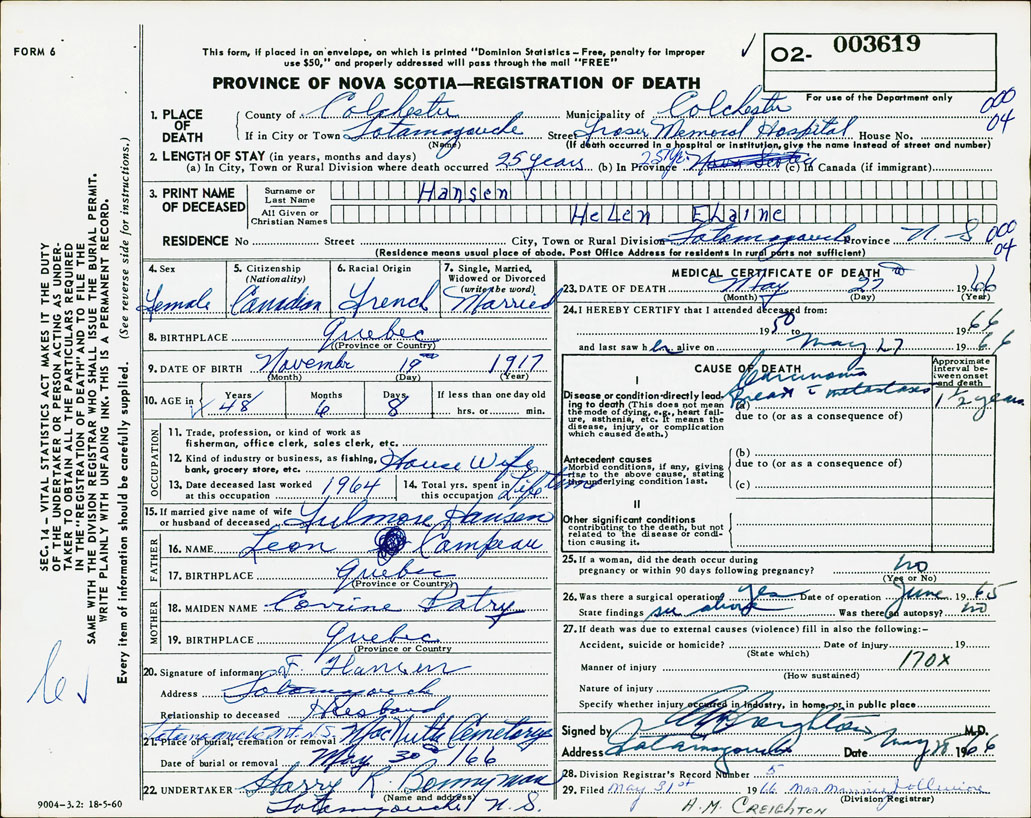 FORM 6
This form, if placed in an envelope, on which is printed "Dominion Statistics – Free, penalty for improper
use $50," and properly addressed will pass through the mail "FREE"
PROVINCE OF NOVA SCOTIA—REGISTRATION OF DEATH
✓ O2- 003619
For use of the Department only
000
04
1. PLACE OF DEATH
County of Colchester Municipality of Colchester
If in City or Town Tatamagouche Street Fraser Memorial Hospital House No.
(Name) (If death occurred in a hospital or institution, give the name instead of street and number)
2. LENGTH OF STAY (in years, months and days)
(a) In City, Town or Rural Division where death occurred 25 years (b) In Province 25 Yrs Nova Scotia (c) In Canada (if immigrant)
3. PRINT NAME OF DECEASED
Surname or Last Name Hansen
All Given or Christian Names HeLen ELaine
RESIDENCE No Street City, Town or Rural Division Tatamagouche Province N. S
000
04
(Residence means usual place of abode. Post Office Address for residents in rural parts not sufficient)
4. Sex Female
5. Citizenship (Nationality) Canadian
6. Racial Origin French
7. Single, Married, Widowed or Divorced (write the word) Married
8. BIRTHPLACE Quebec
(Province or Country)
9. DATE OF BIRTH November 19 1917
(Month) (Day) (Year)
10. AGE in Years ✓ 48 Months 6 Days 8 If less than one day old
hrs. or min.
OCCUPATION
11. Trade, profession, or kind of work as
fisherman, office clerk, sales clerk, etc.
12. Kind of industry or business, as fishing,
bank, grocery store, etc. House Wife
13. Date deceased last worked
at this occupation 1964
14. Total yrs. spent in
this occupation Lifetime
15. If married give name of wife
or husband of deceased Hansen
FATHER
16. NAME Leon Campeau
17. BIRTHPLACE Quebec
(Province or Country)
MOTHER
18. MAIDEN NAME Corrine Patry
19. BIRTHPLACE Quebec
(Province or Country
20. Signature of informant F. Hansen
Address Tatamagouche
Relationship to deceased Husband
Tatamagouche Mt. N.S.
21. Place of burial, cremation or removal MacNutt Cemetery
Date of burial or removal May 30 /66
22. UNDERTAKER Harry R. Bonnyman
(Name and address)
Tatamagouche N. S.
9004-3.2: 18-5-60
MEDICAL CERTIFICATE OF DEATH
23. DATE OF DEATH May 27 1966
(Month) (Day) (Year)
24. I HEREBY CERTIFY that I attended deceased from:
1950 to 1966
and last saw her alive on May 27 1966
CAUSE OF DEATH
Approximate interval between onset and death
I
Disease or condition directly leading to death (This does not mean the mode of dying, e.g., heart failure, asthenia, etc. It means the disease, injury, or complication which caused death.)
(a) Carcinoma Breast c metastases 1 1/2 years
due to (or as a consequence of)
Antecedent causes
Morbid conditions, if any, giving rise to the above cause, stating the underlying condition last.
(b)
due to (or as a consequence of)
(c)
II
Other significant conditions
contributing to the death, but not related to the disease or condition causing it.
25. If a woman, did the death occur during
pregnancy or within 90 days following pregnancy? no
(Yes or No)
26. Was there a surgical operation yes Date of operation June 1965
State findings see above Was there an autopsy? no
27. If death was due to external causes (violence) fill in also the following:–
Accident, suicide or homicide? Date of injury 19
(State which)
Manner of injury 170X
(How sustained)
Nature of injury
Specify whether injury occurred in industry, in home, or in public place
Signed by M.D.
Address Tatamagouche Date May 28 1966
28. Division Registrar's Record Number 5
29. Filed May 31st 1966 Mrs.
(Division Registrar)
A. M. CREIGHTON
SEC. 14 – VITAL STATISTICS ACT MAKES IT THE DUTY
OF THE UNDERTAKER OR PERSON ACTING AS UNDER-
TAKER TO OBTAIN ALL THE PARTICULARS REQUIRED
IN THE "REGISTRATION OF DEATH" AND TO FILE THE
SAME WITH THE DIVISION REGISTRAR WHO SHALL ISSUE THE BURIAL PERMIT.
WRITE PLAINLY WITH UNFADING INK. THIS IS A PERMANENT RECORD.
Every item of information should be carefully supplied. (See reverse side for instructions.)